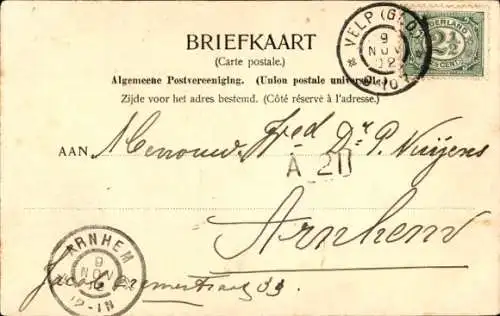 BRIEFKAART
(Carte postale.)
Algemeene Postvereeniging. (Union postale universelle.)
Zijde voor het adres bestemd. (Côté réservé à l'adresse.)
VELP (GLD)
9
NOV
12
NEDERLAND
2½
CENT
AAN Mevrouw Dr. P. Nuijens
A 20
Arnhem
ARNHEM
9
NOV
12-1N
Jacob Cremerstraat 33.